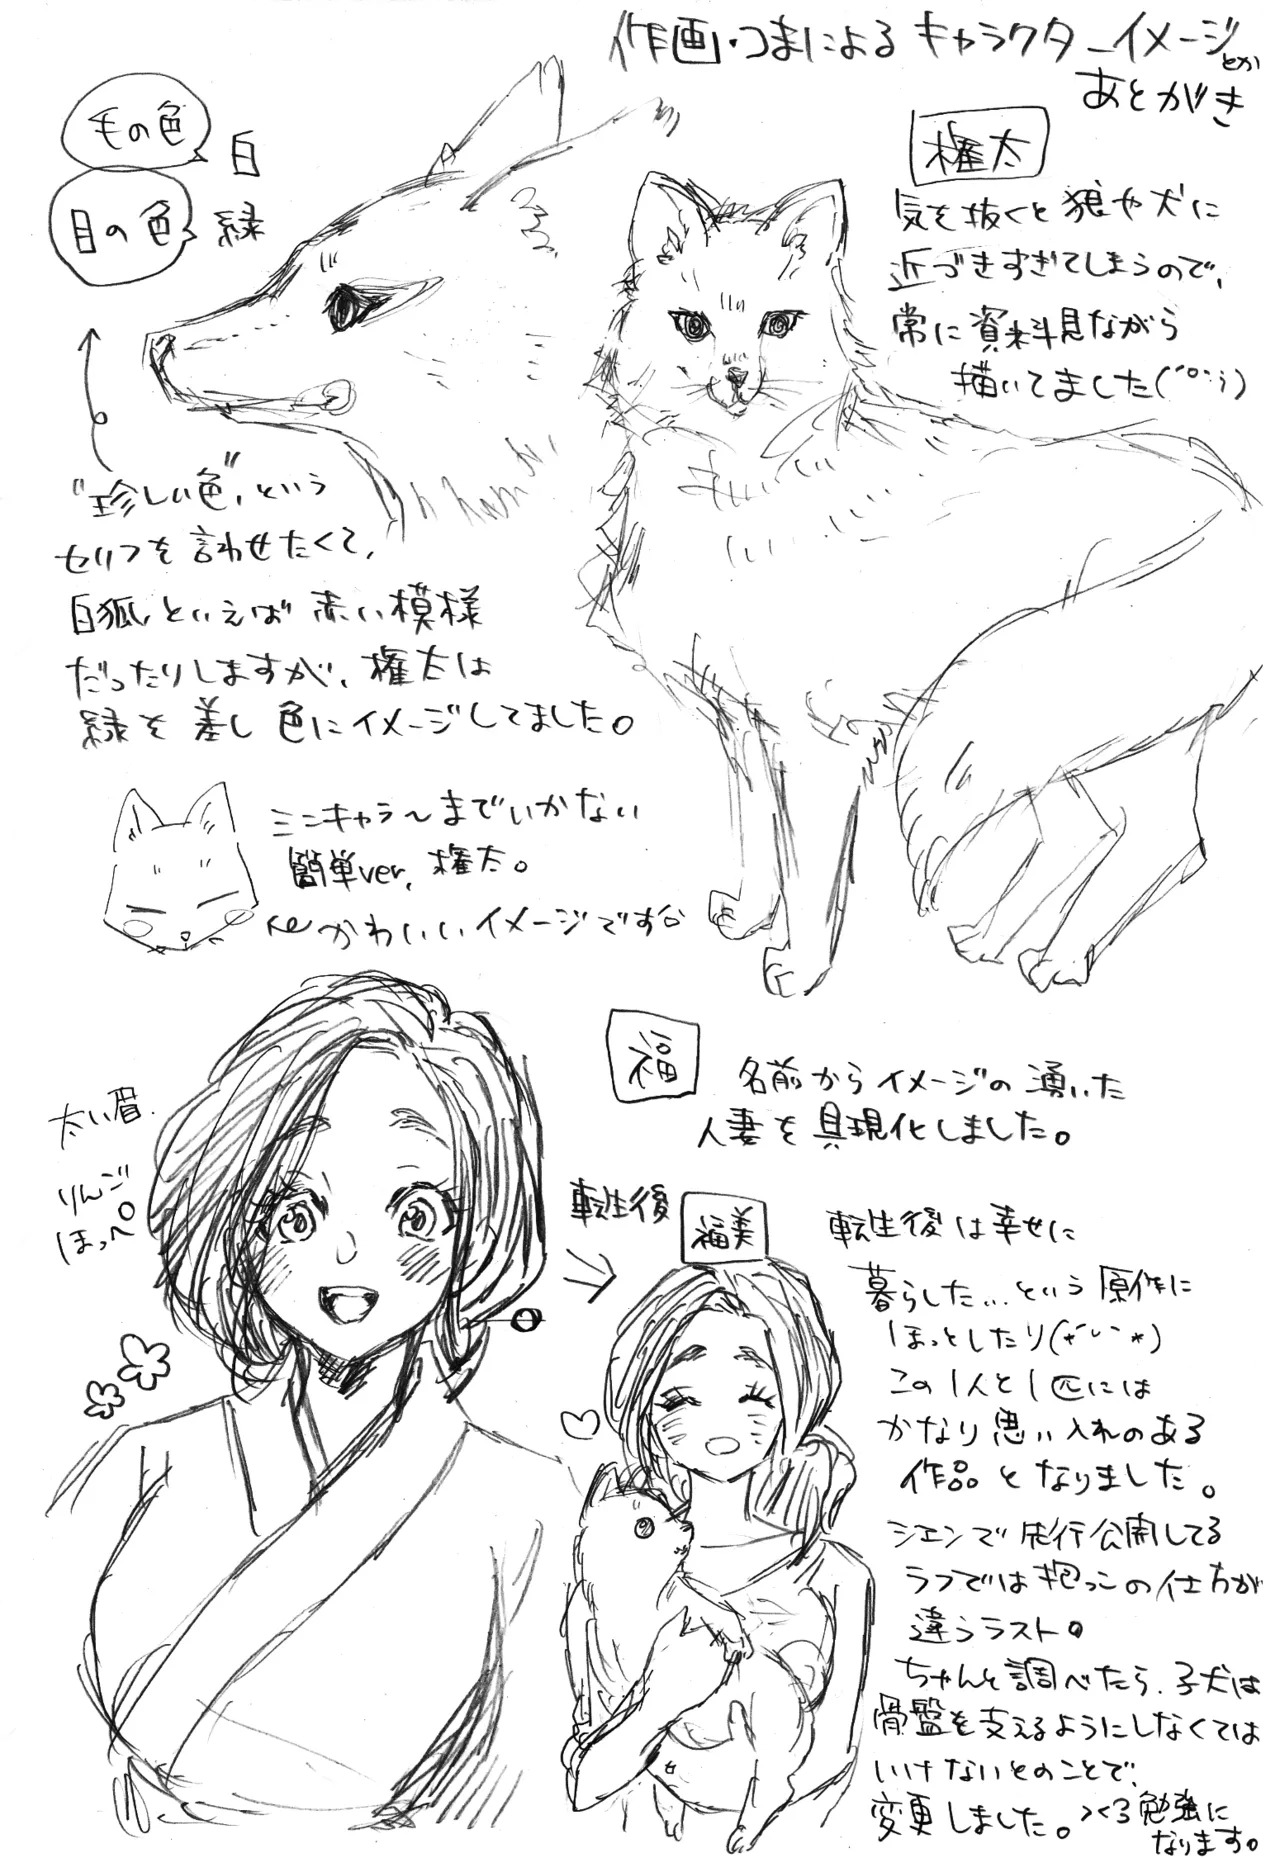 作画・つまによるキャラクターイメージとか
あとがき
毛の色
白
目の色
緑
権太
気を抜くと狼や犬に
近づきすぎてしまうので、
常に資料見ながら
描いてました(´°`;)
"珍しい色"、という
セリフを言わせたくて、
白狐、といえば赤い模様
だったりしますが、権太は
緑を差し色にイメージしてました。
ミニキャラ〜までいかない
簡単ver.権太。
かわいいイメージです
福
名前からイメージの湧いた
人妻を具現化しました。
太い眉
りんご
ほっぺ
転生後
福美
転生後は幸せに
暮らした…という原作に
ほっとしたり(*˘︶˘*)
この1人と1匹には
かなり思い入れのある
作品となりました。
シエンで先行公開してる
ラフでは抱っこの仕方が
違うラスト。
ちゃんと調べたら、子犬は
骨盤を支えるようにしなくては
いけないとのことで、
変更しました。
勉強に
なります。